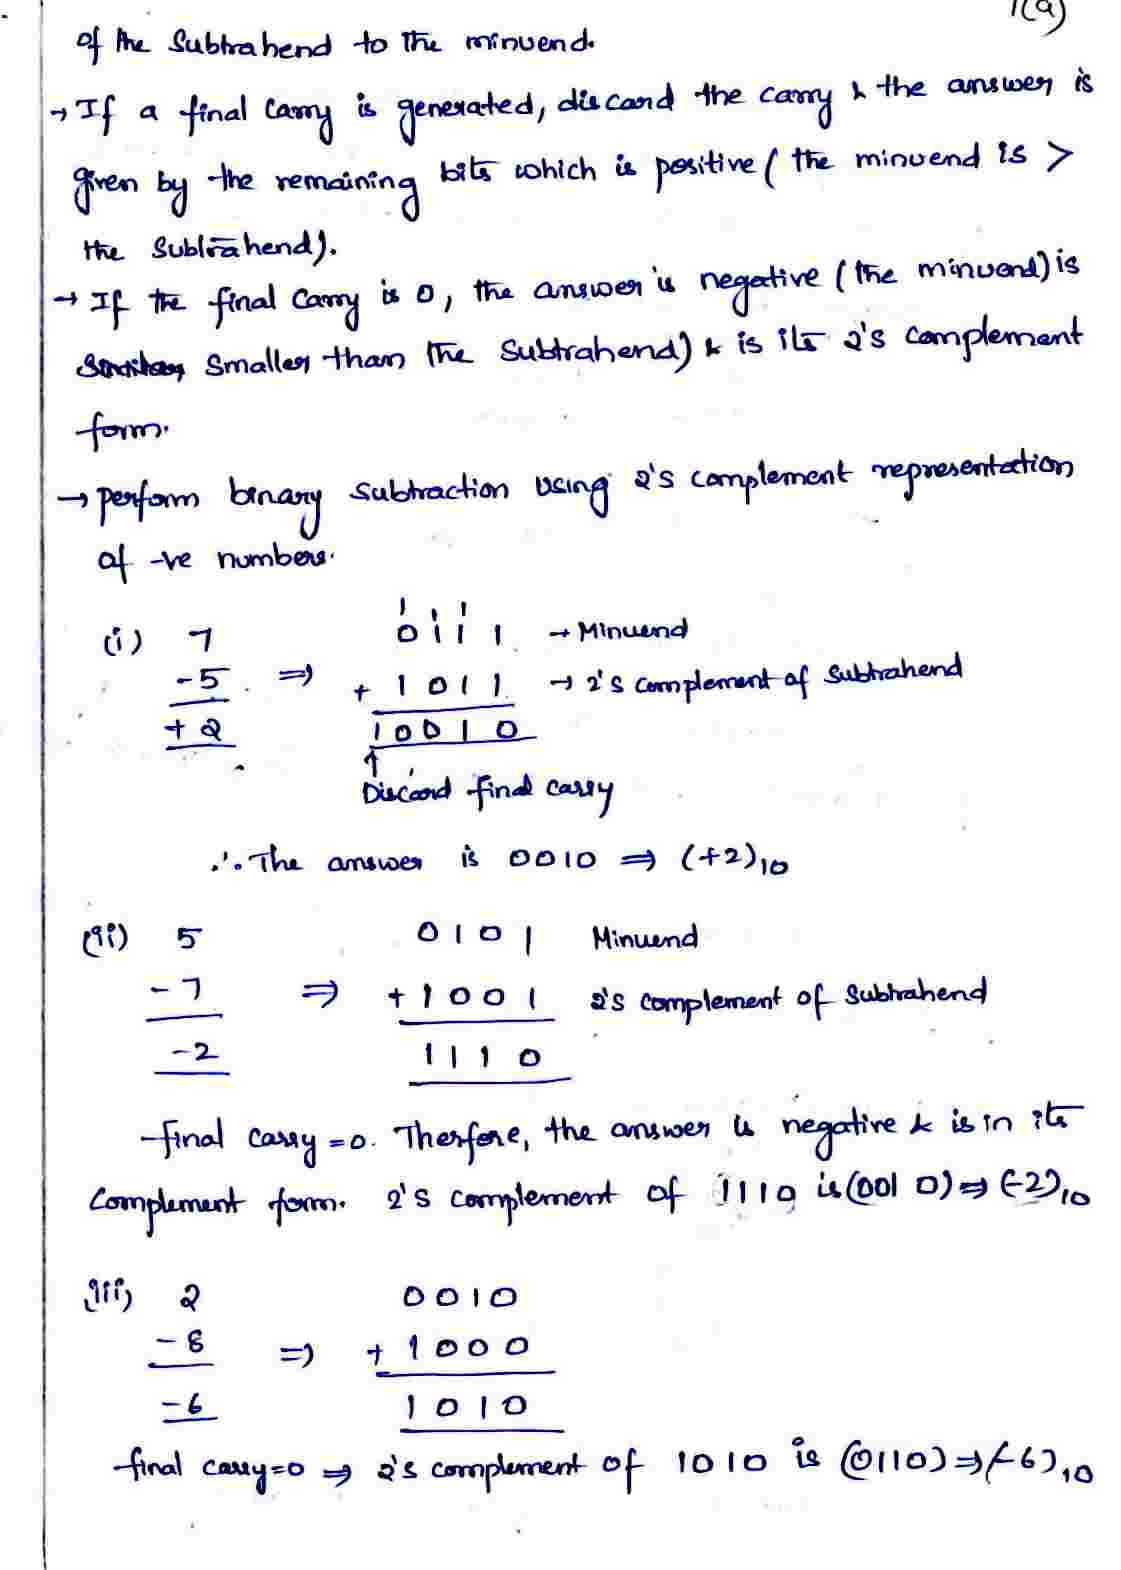 1(a)
of the Subtrahend to the minuend.
→ If a final carry is generated, discard the carry & the answer is
given by the remaining bits which is positive ( the minuend is >
the Subtrahend).
→ If the final carry is 0, the answer is negative ( the minuend) is
Smaller than the Subtrahend) & is its 2's complement
form.
→ perform binary subtraction using 2's complement representation
of -ve numbers.
1 1 1
(i) 7 0 1 1 1 → Minuend
- 5 ⇒ + 1 0 1 1 → 2's complement of subtrahend
+ 2 1 0 0 1 0
↑
Discard final carry
∴ The answer is 0010 ⇒ (+2)10
(ii) 5 0 1 0 1 Minuend
- 7 ⇒ + 1 0 0 1 2's complement of Subtrahend
- 2 1 1 1 0
final carry = 0. Therfore, the answer is negative & is in its
complement form. 2's complement of 1110 is (0010) ⇒ (-2)10
(iii) 2 0 0 1 0
- 8 ⇒ + 1 0 0 0
- 6 1 0 1 0
final carry = 0 ⇒ 2's complement of 1010 is (0110) ⇒ (-6)10